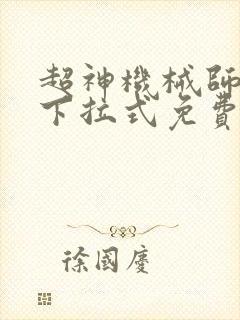 超神機械師
下拉式免費
徐國慶